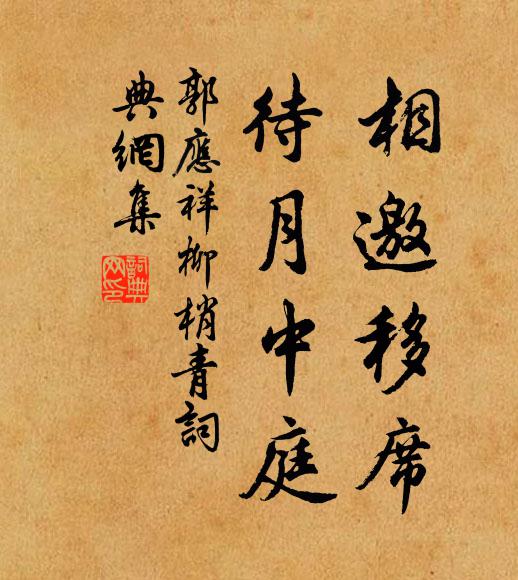 相邀移席
待月中庭
郭應祥柳梢青詞
典網集
詞典網印